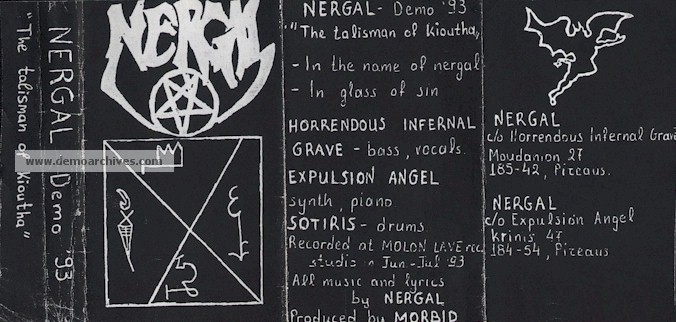 "The talisman of Kioutha"
NERGAL Demo '93
NERGAL
www.demoarchives.com
NERGAL - Demo '93
"The talisman of Kioutha"
- In the name of nergal
- In glass of sin
HORRENDOUS INFERNAL
GRAVE - bass, vocals.
EXPULSION ANGEL
synth, piano
SOTIRIS - drums
Recorded at MOLON LAVE rec.
studio Jun-Jul '93
All music and lyrics
by NERGAL
Produced by MORBID
NERGAL
c/o Horrendous Infernal Grave
Moudanion 27
185-42, Pireaus.
NERGAL
c/o Expulsion Angel
Krinis 47
184-54, Pireaus